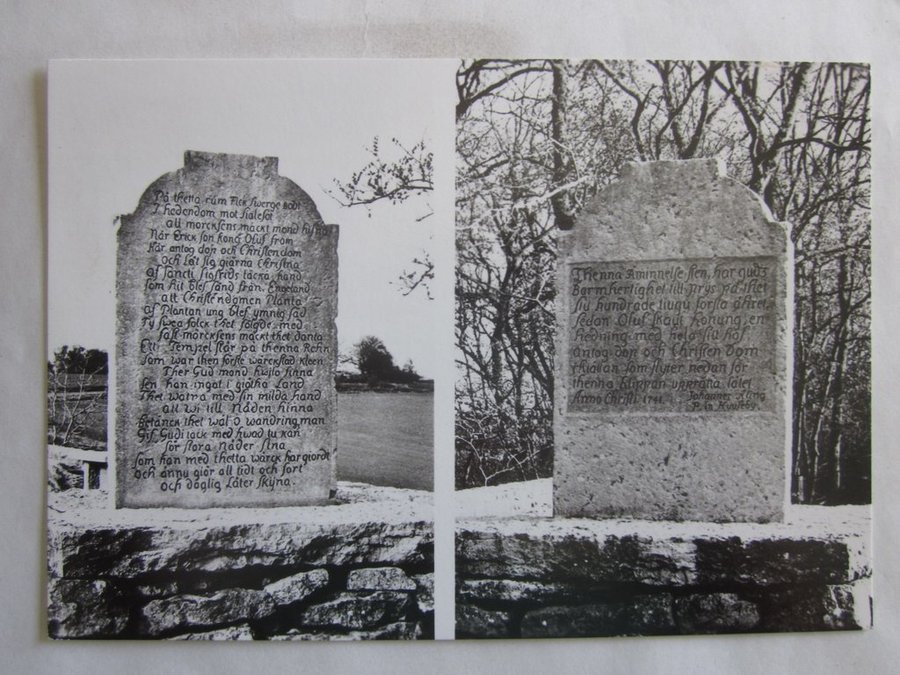 På thetta rum Fick Swerge bodt
I hedendom mot siälesot
all mörcksens mackt mond hisna
När Erick son kong Oluf from
Här antog dop och Christendom
Och Lät sig giärna Christna
af Sancti Sigfrids täcka hand
som hit blef sänd från Engeland
att Christendomen Planta
af Plantan ung blef ymnig säd
Ty Swea folck thet följde med
fast mörcksens mackt thet danta
Ett Tempel står på thenna Rehn
Som war then förste wärckstad kleen
Ther Gud mond hwilo finna
sen han ingåt i giötha Land
Thet watra med sin milda hand
all wi till Nåden hinna
Betänck thet wäl o wandring man
Gif Gudi tack med hwad tu kan
för stora Nåder sina
som han med thetta wärck har giordt
Och ännu giör all tidt och fort
Och daglig Låter skijna.
Thenna Åminnelse sten, har gudz
Barmhertighet till prys på thet
siu hundrade tiugu första åhret
sedan Oluf skövt Konung, en
hedning med thet gifund
antog dop och Christen dom
i källan som flyter nedan för
thenna Klippan upprätta låtet
Anno Christi 1741. Johannes Käng
P. in Kyneby.